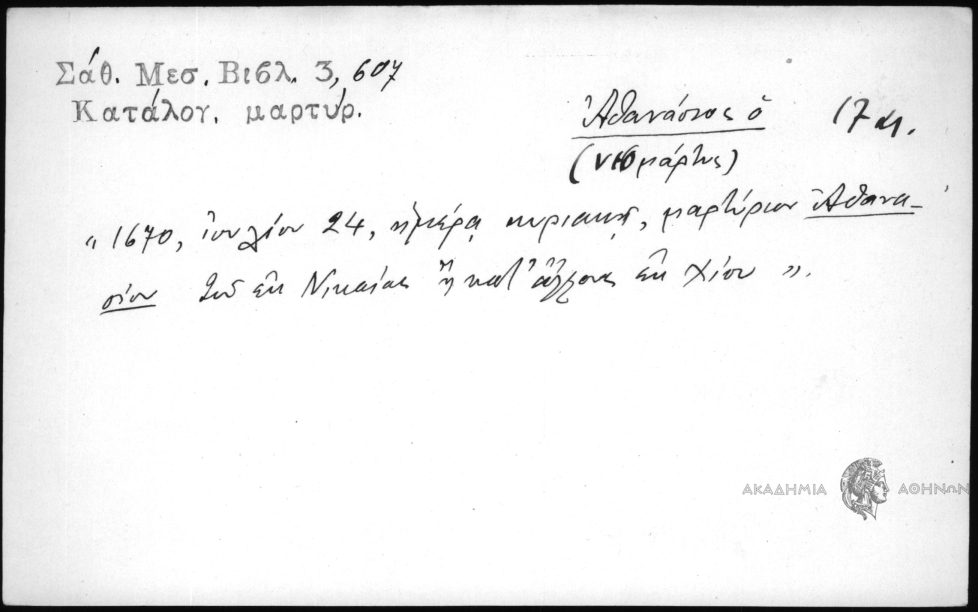 Σάθ. Μεσ. Βιβλ. 3, 607
Κατάλογ. μαρτύρ.
Ἀθανάσιος ὁ 17 αι.
(νεομάρτυς)
"1670, ἰουλίου 24, ἡμέρᾳ κυριακῇ, μαρτύριον Ἀθανα-
σίου τοῦ ἐκ Νικαίας ἢ κατ' ἄλλους ἐκ Χίου".
ΑΚΑΔΗΜΙΑ ΑΘΗΝΩΝ